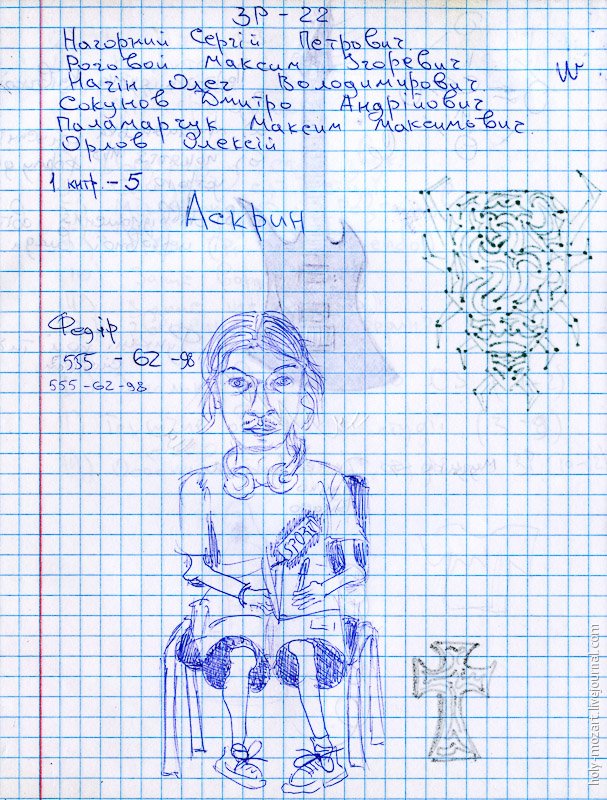 ЗР - 22
Нагорний Сергій Петрович
Роговой Максим Ігоревич
Начін Олег Володимурович
Сокунов Дмитро Андрійович
Паламарчук Максим Максимович.
Орлов Олексій
W
1 кнтр. - 5
Аскрин
Федір
555 - 62 - 98
555 - 62 - 98
SPORT
holy-mozart.livejournal.com